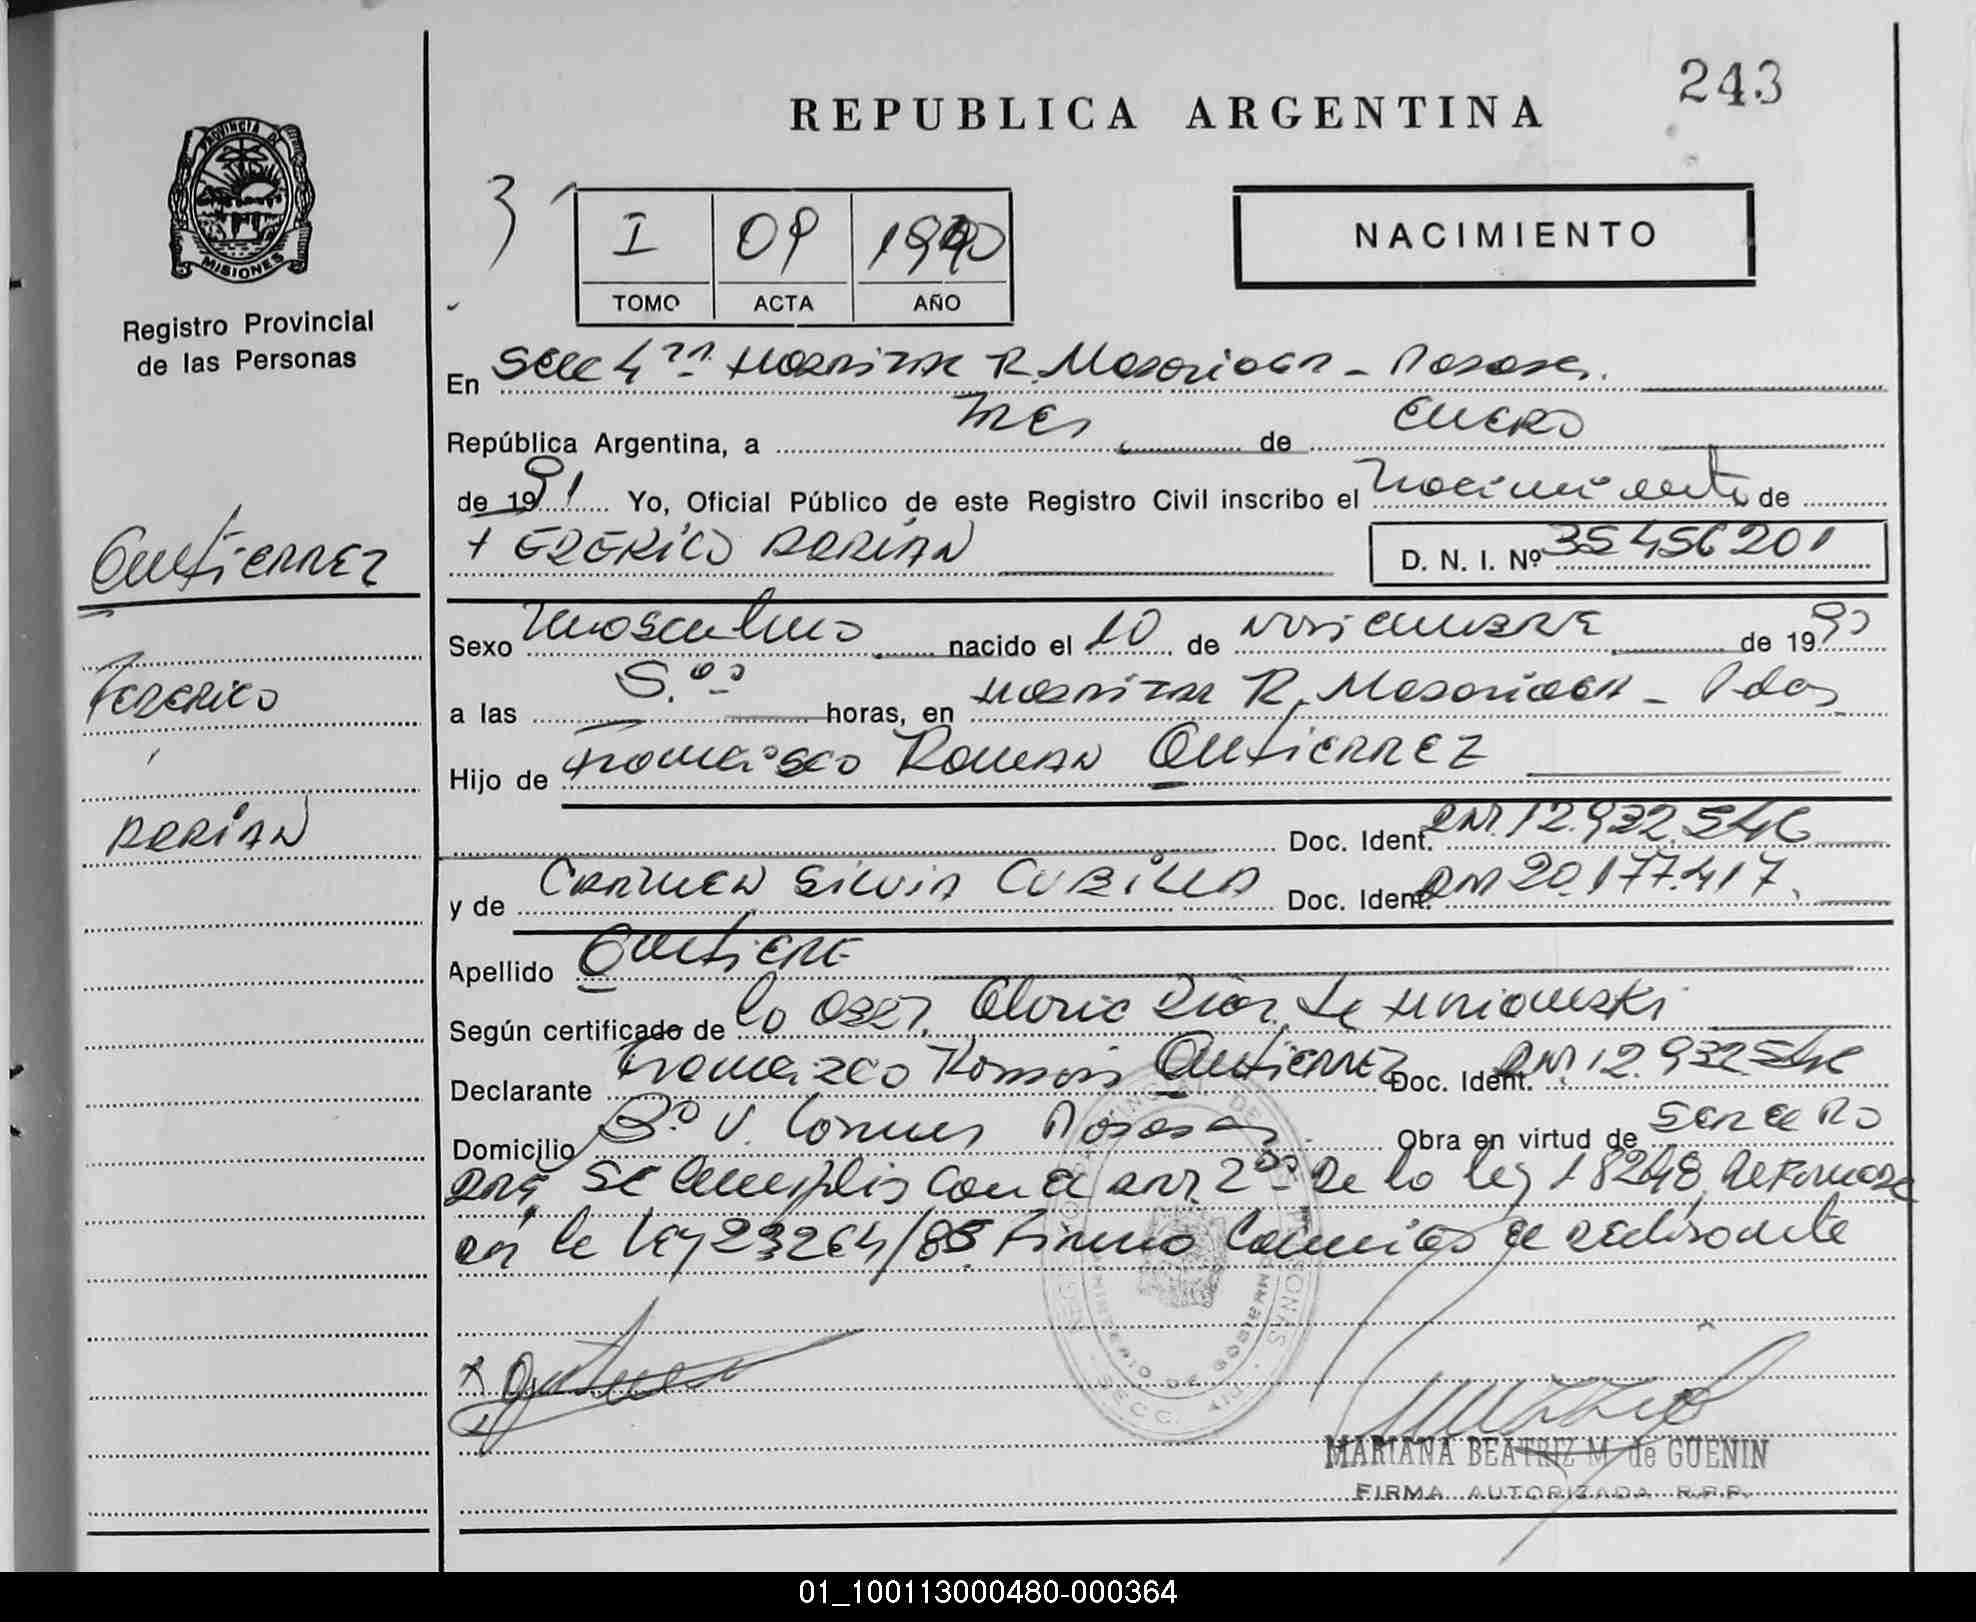 243
REPUBLICA ARGENTINA
PROVINCIA DE
MISIONES
Registro Provincial
de las Personas
3
I 09 1990
TOMO ACTA AÑO
NACIMIENTO
En Secc 4ta Hospital R. Madariaga - Posadas.
República Argentina, a tres de enero
de 1991 Yo, Oficial Público de este Registro Civil inscribo el nacimiento de
FEDERICO ADRIAN D. N. I. Nº 35456201
GutiERREZ
FEDERICO
ADRIAN
Sexo masculino nacido el 10 de noviembre de 1990
a las 5.00 horas, en Hospital R. Madariaga - Pdas
Hijo de Francisco Roman GutiERREZ
Doc. Ident. DNI. 12.932.546
y de CARMEN SILVIA CUBILLA Doc. Ident. DNI 20.177.417.
Apellido GutiERE
Según certificado de la Obst. Gloria Diaz de
Declarante Francisco Roman GutiERREZ Doc. Ident. DNI 12.932546
Domicilio Bº V. Posadas. Obra en virtud de ser el PA
DRE, se cumplio con el art 2do de la ley 18248,
por la ley 23264/85. Firma conmigo el declarante
MARIANA BEATRIZ M. de GUENIN
FIRMA AUTORIZADA R.P.P.
01_100113000480-000364